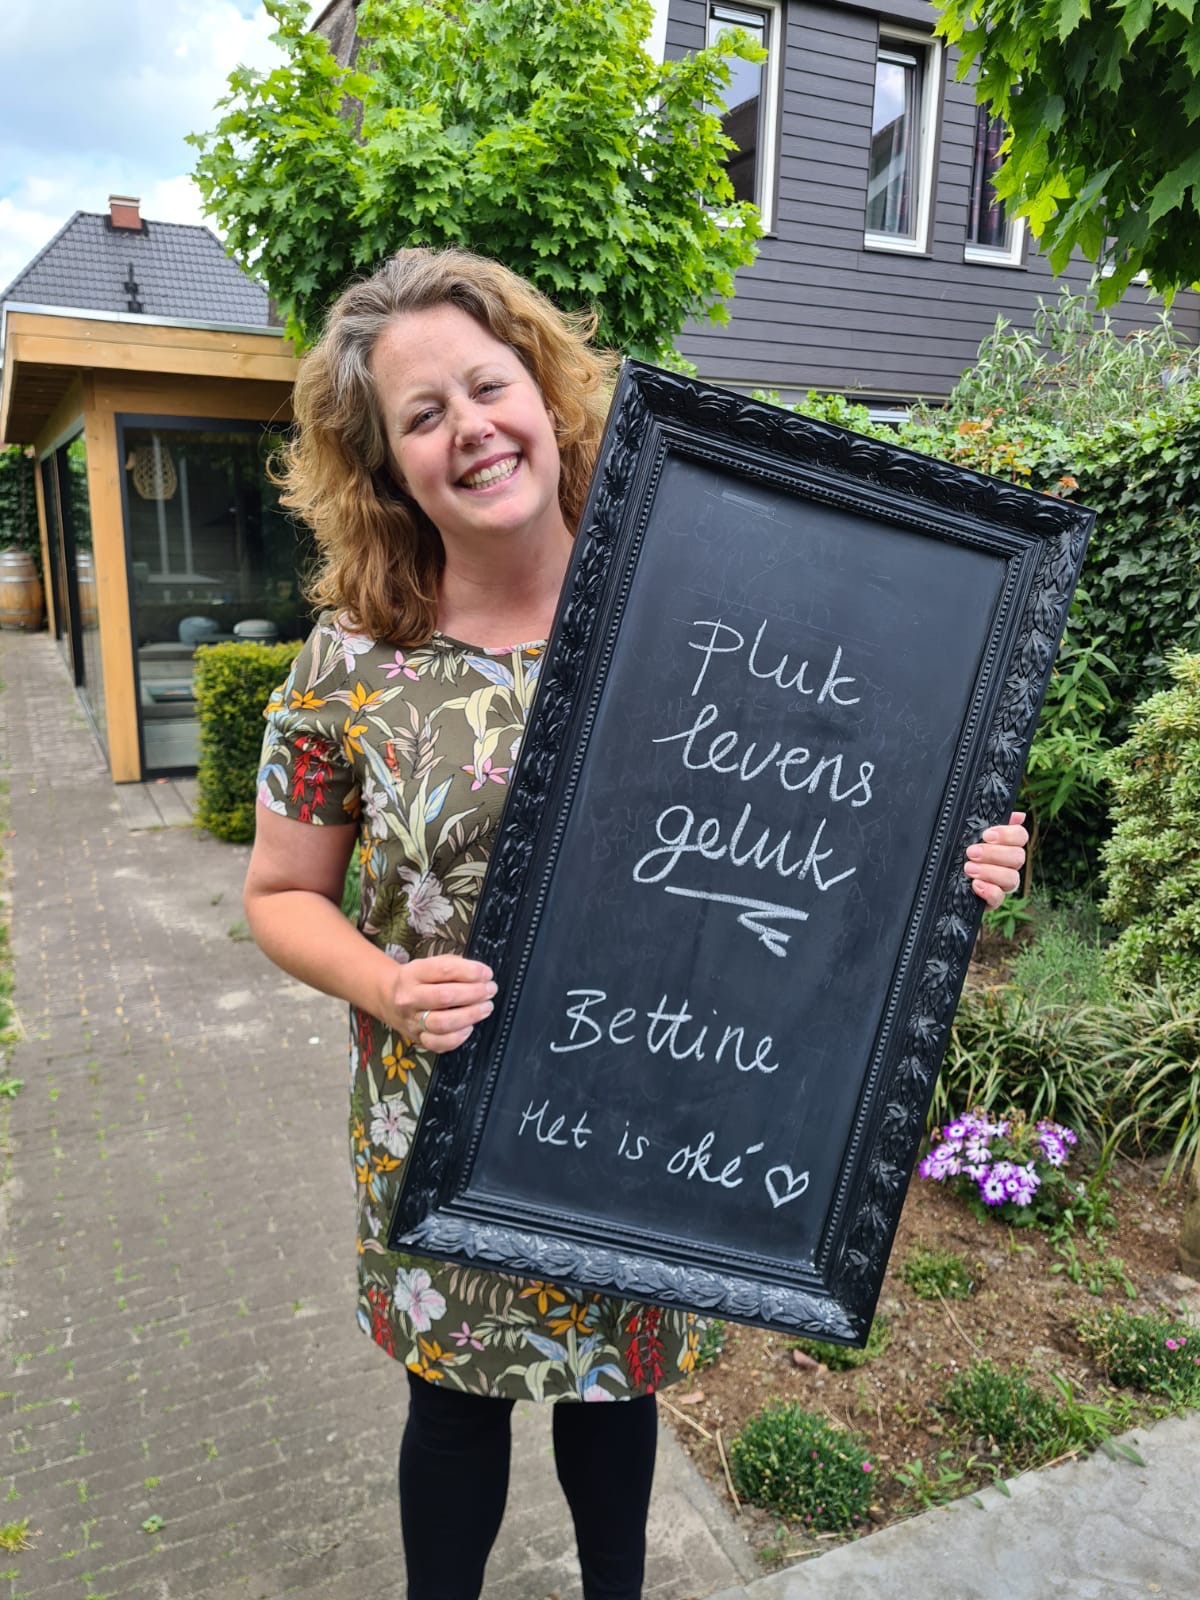 Pluk
levens
geluk
Bettine
Het is oké